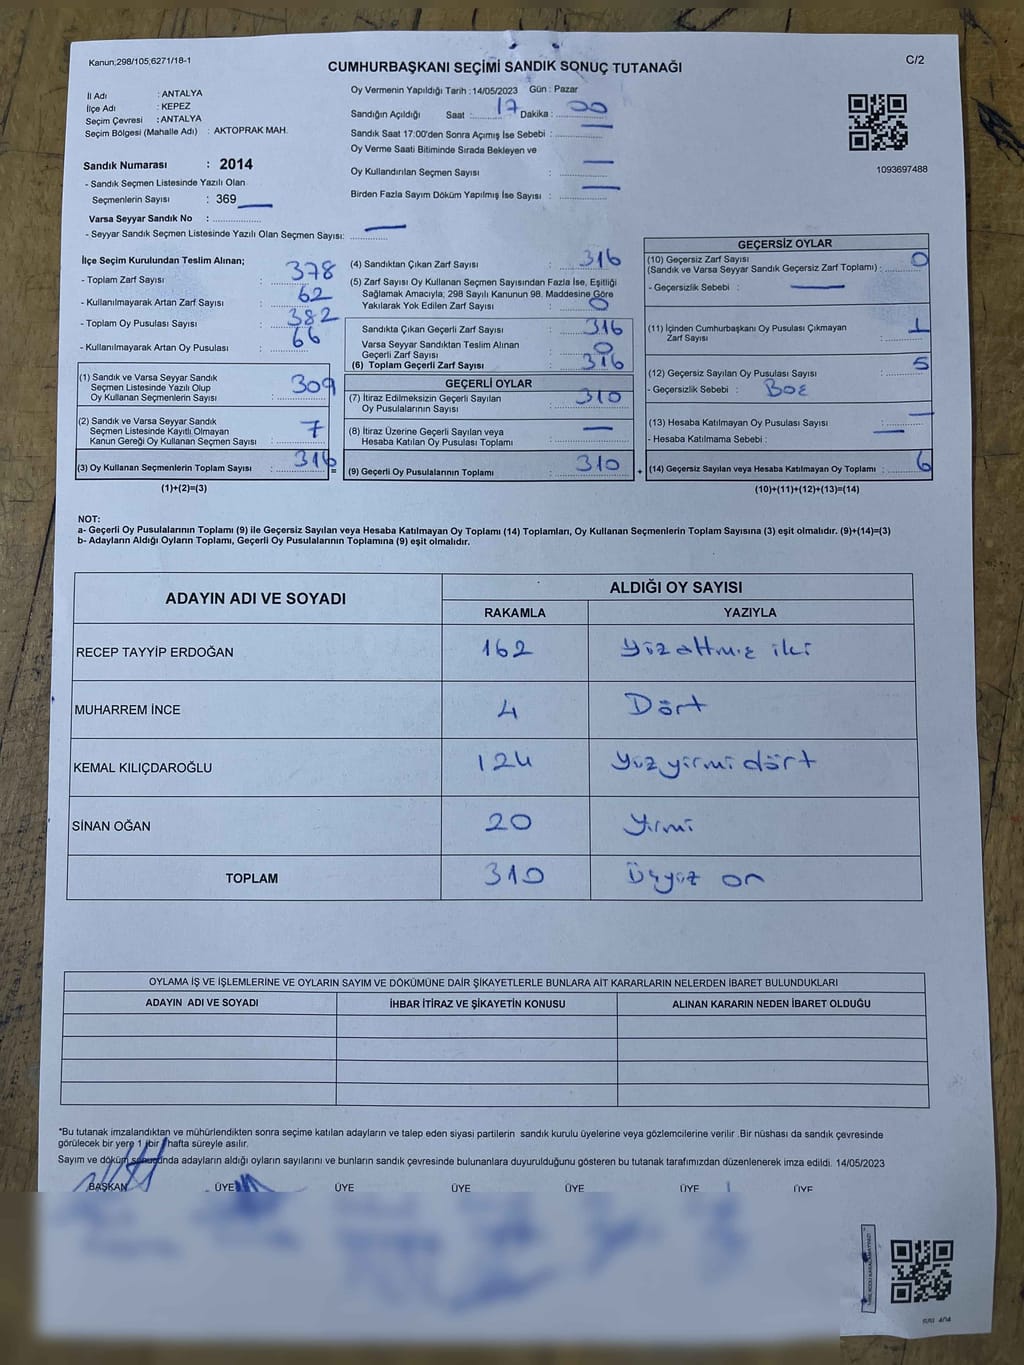 Kanun,298/105,6271/18-1
C/2
CUMHURBAŞKANI SEÇİMİ SANDIK SONUÇ TUTANAĞI
İl Adı : ANTALYA
İlçe Adı : KEPEZ
Seçim Çevresi : ANTALYA
Seçim Bölgesi (Mahalle Adı) : AKTOPRAK MAH.
Sandık Numarası : 2014
- Sandık Seçmen Listesinde Yazılı Olan
Seçmenlerin Sayısı : 369
Varsa Seyyar Sandık No :
- Seyyar Sandık Seçmen Listesinde Yazılı Olan Seçmen Sayısı:
Oy Vermenin Yapıldığı Tarih : 14/05/2023 Gün : Pazar
Sandığın Açıldığı Saat : 17 Dakika : 00
Sandık Saat 17:00'den Sonra Açımış İse Sebebi :
Oy Verme Saati Bitiminde Sırada Bekleyen ve
Oy Kullandırılan Seçmen Sayısı :
Birden Fazla Sayım Döküm Yapılmış İse Sayısı :
1093697488
İlçe Seçim Kurulundan Teslim Alınan;
- Toplam Zarf Sayısı : 378
- Kullanılmayarak Artan Zarf Sayısı : 62
- Toplam Oy Pusulası Sayısı : 382
- Kullanılmayarak Artan Oy Pusulası : 66
(1) Sandık ve Varsa Seyyar Sandık
Seçmen Listesinde Yazılı Olup
Oy Kullanan Seçmenlerin Sayısı : 309
(2) Sandık ve Varsa Seyyar Sandık
Seçmen Listesinde Kayıtlı Olmayan
Kanun Gereği Oy Kullanan Seçmen Sayısı : 7
(3) Oy Kullanan Seçmenlerin Toplam Sayısı : 316
(1)+(2)=(3)
=
(4) Sandıktan Çıkan Zarf Sayısı : 316
(5) Zarf Sayısı Oy Kullanan Seçmen Sayısından Fazla İse, Eşitliği
Sağlamak Amacıyla; 298 Sayılı Kanunun 98. Maddesine Göre
Yakılarak Yok Edilen Zarf Sayısı : 0
Sandıkta Çıkan Geçerli Zarf Sayısı : 316
Varsa Seyyar Sandıktan Teslim Alınan
Geçerli Zarf Sayısı : 0
(6) Toplam Geçerli Zarf Sayısı : 316
GEÇERLİ OYLAR
(7) İtiraz Edilmeksizin Geçerli Sayılan
Oy Pusulalarının Sayısı : 310
(8) İtiraz Üzerine Geçerli Sayılan veya
Hesaba Katılan Oy Pusulası Toplamı : —
(9) Geçerli Oy Pusulalarının Toplamı : 310
+
GEÇERSİZ OYLAR
(10) Geçersiz Zarf Sayısı
(Sandık ve Varsa Seyyar Sandık Geçersiz Zarf Toplamı) : 0
- Geçersizlik Sebebi : —
(11) İçinden Cumhurbaşkanı Oy Pusulası Çıkmayan
Zarf Sayısı : 1
(12) Geçersiz Sayılan Oy Pusulası Sayısı : 5
- Geçersizlik Sebebi : BOE
(13) Hesaba Katılmayan Oy Pusulası Sayısı : —
- Hesaba Katılmama Sebebi : —
(14) Geçersiz Sayılan veya Hesaba Katılmayan Oy Toplamı : 6
(10)+(11)+(12)+(13)=(14)
NOT:
a- Geçerli Oy Pusulalarının Toplamı (9) ile Geçersiz Sayılan veya Hesaba Katılmayan Oy Toplamı (14) Toplamları, Oy Kullanan Seçmenlerin Toplam Sayısına (3) eşit olmalıdır. (9)+(14)=(3)
b- Adayların Aldığı Oyların Toplamı, Geçerli Oy Pusulalarının Toplamına (9) eşit olmalıdır.
ADAYIN ADI VE SOYADI ALDIĞI OY SAYISI
RAKAMLA YAZIYLA
RECEP TAYYİP ERDOĞAN 162 Yüz altmış iki
MUHARREM İNCE 4 Dört
KEMAL KILIÇDAROĞLU 124 Yüz yirmi dört
SİNAN OĞAN 20 Yirmi
TOPLAM 310 Üçyüz on
OYLAMA İŞ VE İŞLEMLERİNE VE OYLARIN SAYIM VE DÖKÜMÜNE DAİR ŞİKAYETLERLE BUNLARA AİT KARARLARIN NELERDEN İBARET BULUNDUKLARI
ADAYIN ADI VE SOYADI İHBAR İTİRAZ VE ŞİKAYETİN KONUSU ALINAN KARARIN NEDEN İBARET OLDUĞU
*Bu tutanak imzalandıktan ve mühürlendikten sonra seçime katılan adayların ve talep eden siyasi partilerin sandık kurulu üyelerine veya gözlemcilerine verilir .Bir nüshası da sandık çevresinde
görülecek bir yere 1 (bir) hafta süreyle asılır.
Sayım ve döküm sonucunda adayların aldığı oyların sayılarını ve bunların sandık çevresinde bulunanlara duyurulduğunu gösteren bu tutanak tarafımızdan düzenlenerek imza edildi. 14/05/2023
BAŞKAN ÜYE ÜYE ÜYE ÜYE ÜYE ÜYE